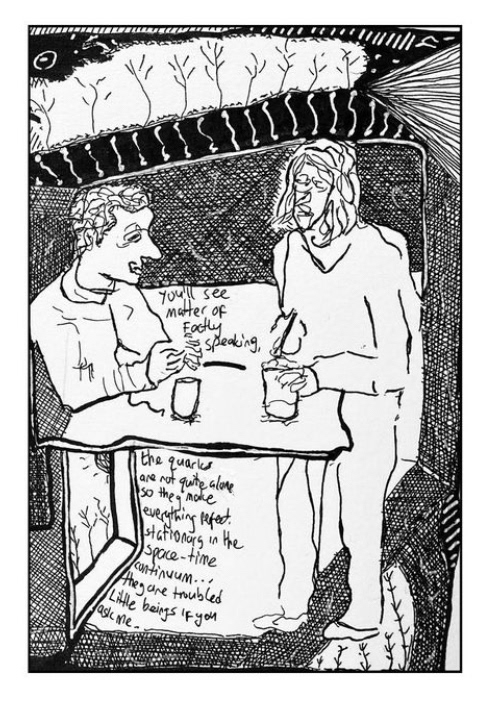 you'll see
matter of
Factly
speaking,
the quarks
are not quite alone
so they make
everything pefect.
stationary in the
space-time
continuum...
they are troubled
Little beings if you
ask me.